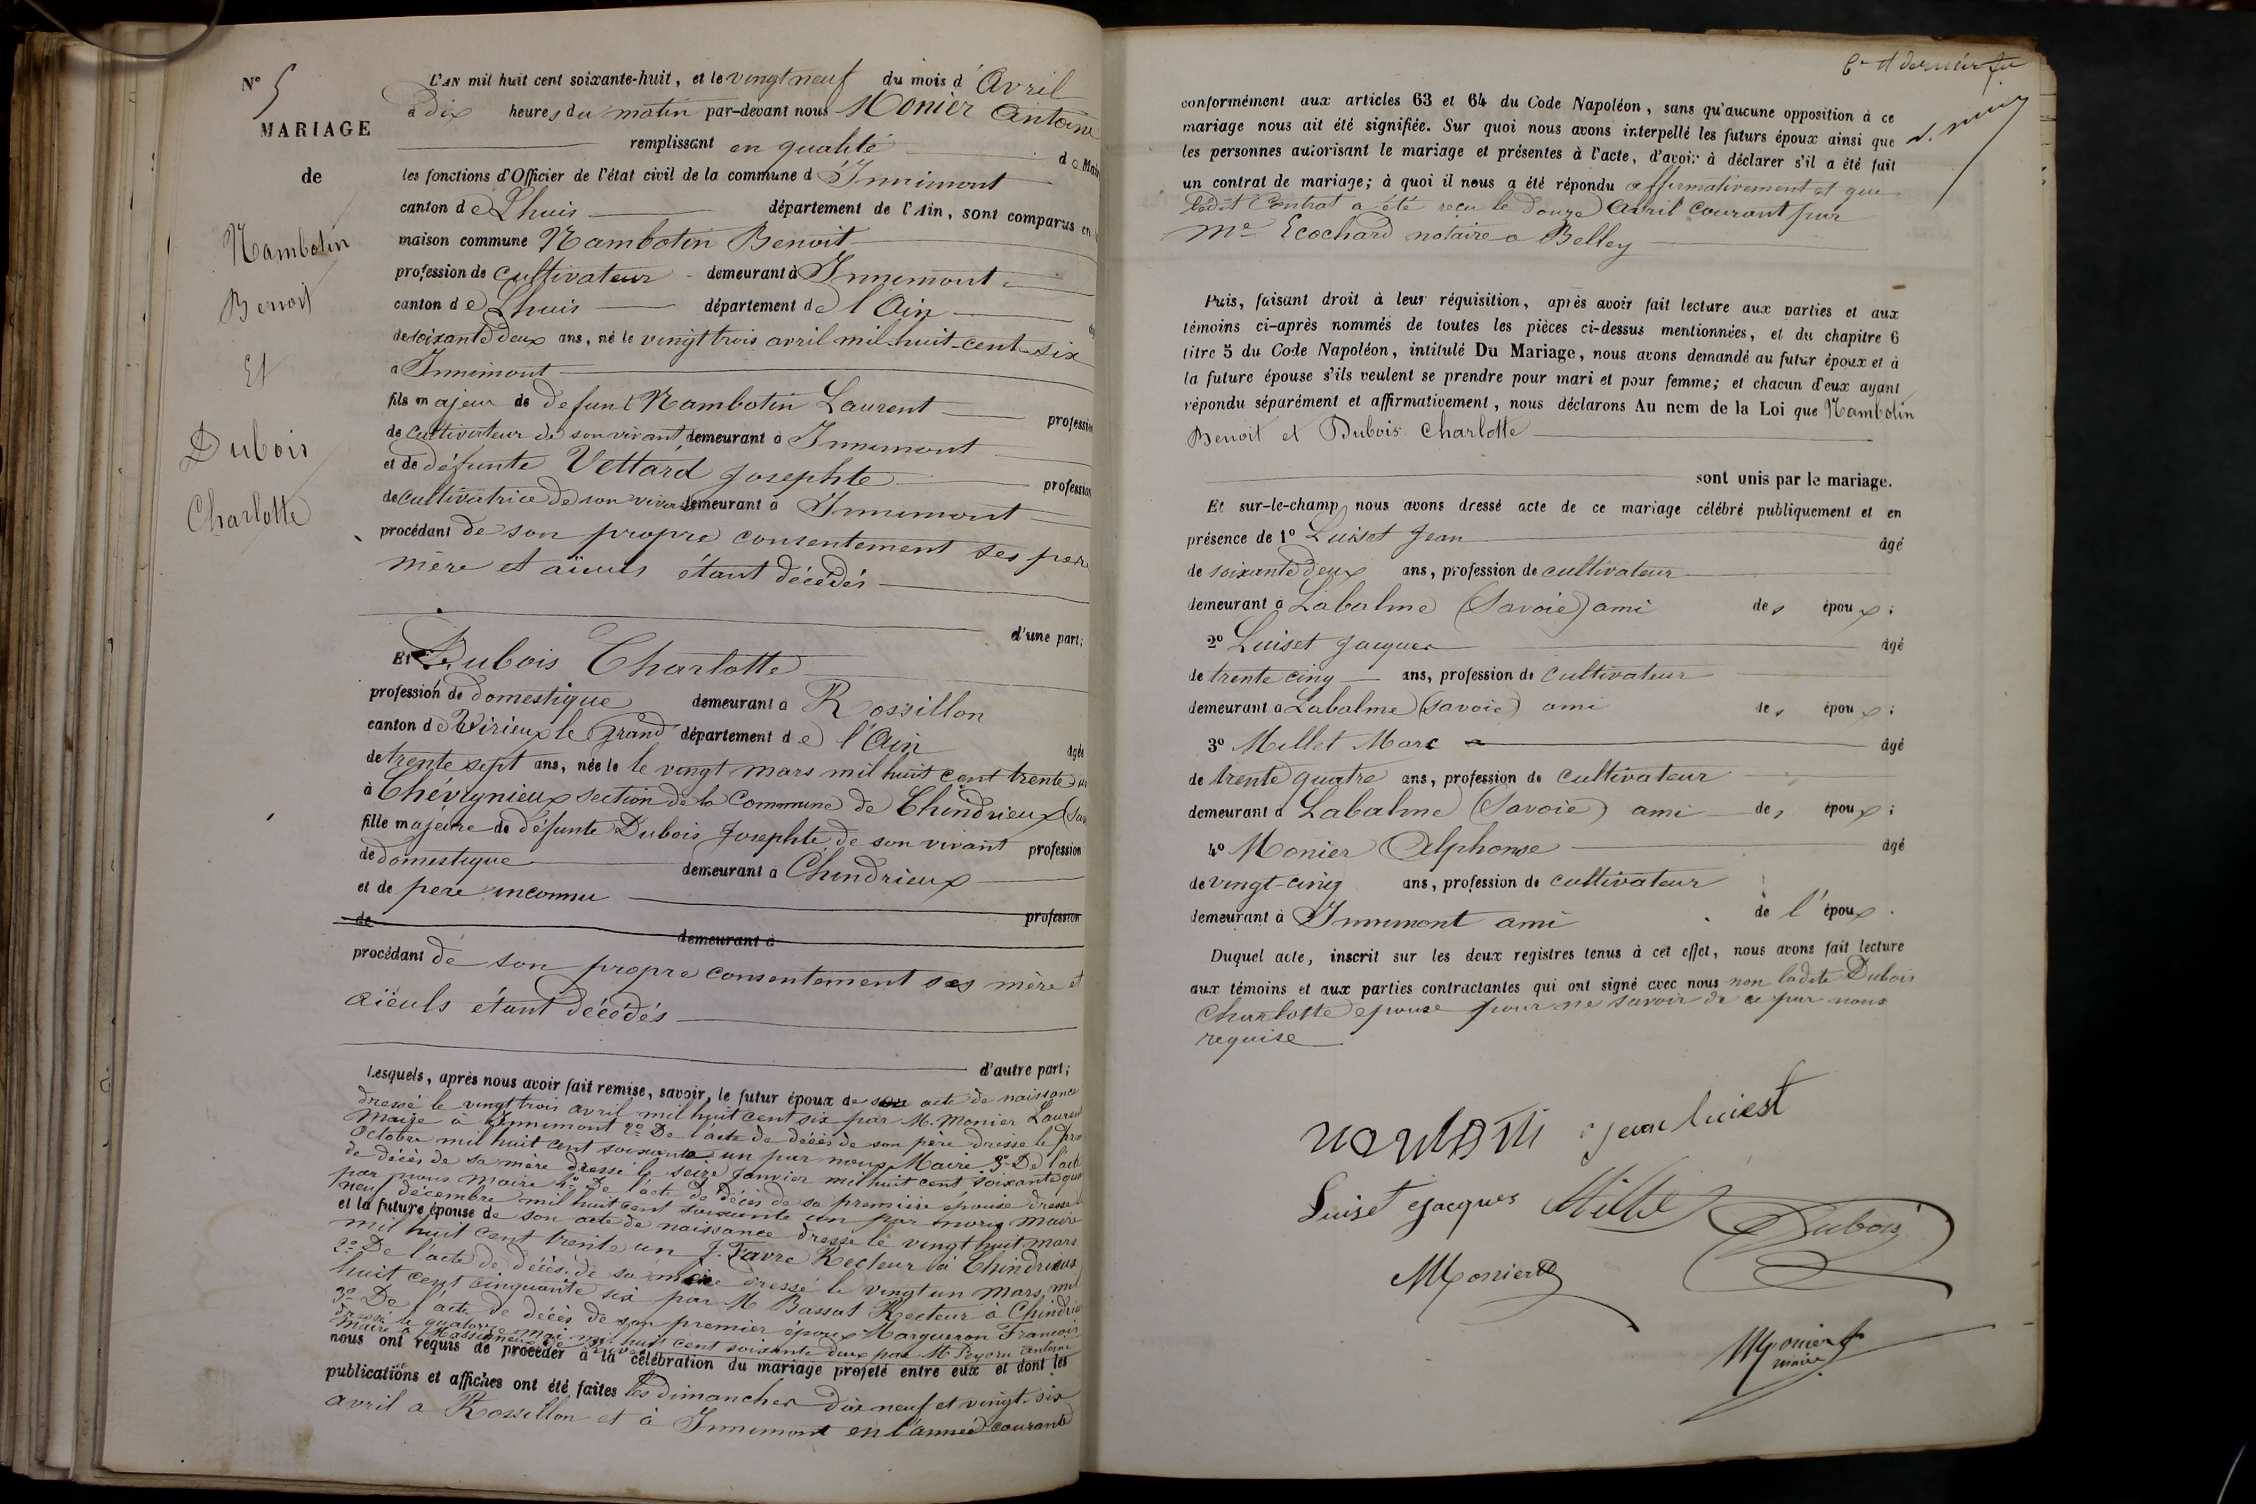 N° 5
MARIAGE
de
Nambotin
Benoit
Et
Dubois
Charlotte
L'AN mil huit cent soixante-huit, et le vingt neuf du mois d'Avril
à dix heures du matin par-devant nous Monier Antoine
remplissant en qualité de Maire
les fonctions d'Officier de l'état civil de la commune d'Innimont
canton de Lhuis département de l'Ain, sont comparus en
maison commune Nambotin Benoit
profession de cultivateur demeurant à Innimont
canton de Lhuis département de l'Ain
de soixante deux ans, né le vingt trois avril mil huit cent six
à Innimont
fils majeur de defunt Nambotin Laurent profession
de cultivateur de son vivant demeurant à Innimont
et de défunte Vettard Josephte profession
de cultivatrice de son vivant demeurant à Innimont
procédant de son propre consentement ses père
mère et aïeuls étant décédés
d'une part;
Et Dubois Charlotte
profession de domestique demeurant à Rossillon
canton de Virieux le grand département de l'Ain âgée
de trente sept ans, née le le vingt mars mil huit cent trente un
à Chévignieux section de la Commune de Chindrieux (Sav
fille majeure de défunte Dubois Josephte de son vivant profession
de domestique demeurant à Chindrieux
et de père inconnu
de demeurant à profession
procédant de son propre consentement ses mère et
aïeuls étant décédés
d'autre part;
Lesquels, après nous avoir fait remise, savoir, le futur époux de son acte de naissance
dressé le vingt trois avril mil huit cent six par M. Monier Laurent
Maire à Innimont 2° De l'acte de décès de son père dressé le
Octobre mil huit cent soixante un par nous Maire 3° De l'acte
de décès de sa mère dressé le seize Janvier mil huit cent soixante
par nous Maire 4° De l'acte de décès de sa première épouse dressé
neuf décembre mil huit cent soixante un par nous Maire
et la future épouse de son acte de naissance dressé le vingt huit mars
mil huit cent trente un J. Favre Recteur à Chindrieux
2° De l'acte de décès de sa mère dressé le vingt un mars mil
huit cent cinquante six par M Bassat Recteur à Chindrieux
3° De l'acte de décès de son premier époux Margueron François
dressé le quatorze mai mil huit cent soixante deux par M Peysru Antoine
Maire à
nous ont requis de procéder à la célébration du mariage projeté entre eux et dont les
publications et affiches ont été faites les dimanches dix neuf et vingt six
avril à Rossillon et à Innimont en l'année courante
6e et dernier
conformément aux articles 63 et 64 du Code Napoléon, sans qu'aucune opposition à ce
mariage nous ait été signifiée. Sur quoi nous avons interpellé les futurs époux ainsi que
les personnes autorisant le mariage et présentes à l'acte, d'avoir à déclarer s'il a été fait
un contrat de mariage; à quoi il nous a été répondu affirmativement et que
ledit Contrat a été reçu le douze Avril courant par
Me Ecochard notaire à Belley
Puis, faisant droit à leur réquisition, après avoir fait lecture aux parties et aux
témoins ci-après nommés de toutes les pièces ci-dessus mentionnées, et du chapitre 6
titre 5 du Code Napoléon, intitulé Du Mariage, nous avons demandé au futur époux et à
la future épouse s'ils veulent se prendre pour mari et pour femme; et chacun d'eux ayant
répondu séparément et affirmativement, nous déclarons Au nom de la Loi que Nambotin
Benoit et Dubois Charlotte
sont unis par le mariage.
Et sur-le-champ nous avons dressé acte de ce mariage célébré publiquement et en
présence de 1° Luiset Jean âgé
de soixante deux ans, profession de cultivateur
demeurant à Labalme (Savoie) ami des époux;
2° Luiset Jacques âgé
de trente cinq ans, profession de cultivateur
demeurant à Labalme (Savoie) ami des époux;
3° Millet Marc âgé
de trente quatre ans, profession de cultivateur
demeurant à Labalme (Savoie) ami des époux;
4° Monier Alphonse âgé
de vingt-cinq ans, profession de cultivateur
demeurant à Innimont ami de l'époux.
Duquel acte, inscrit sur les deux registres tenus à cet effet, nous avons fait lecture
aux témoins et aux parties contractantes qui ont signé avec nous non ladite Dubois
Charlotte épouse pour ne savoir de ce par nous
requise
nambotin jean luiest
Luiset Jacques Millet Dubois
Monier
Monier
maire